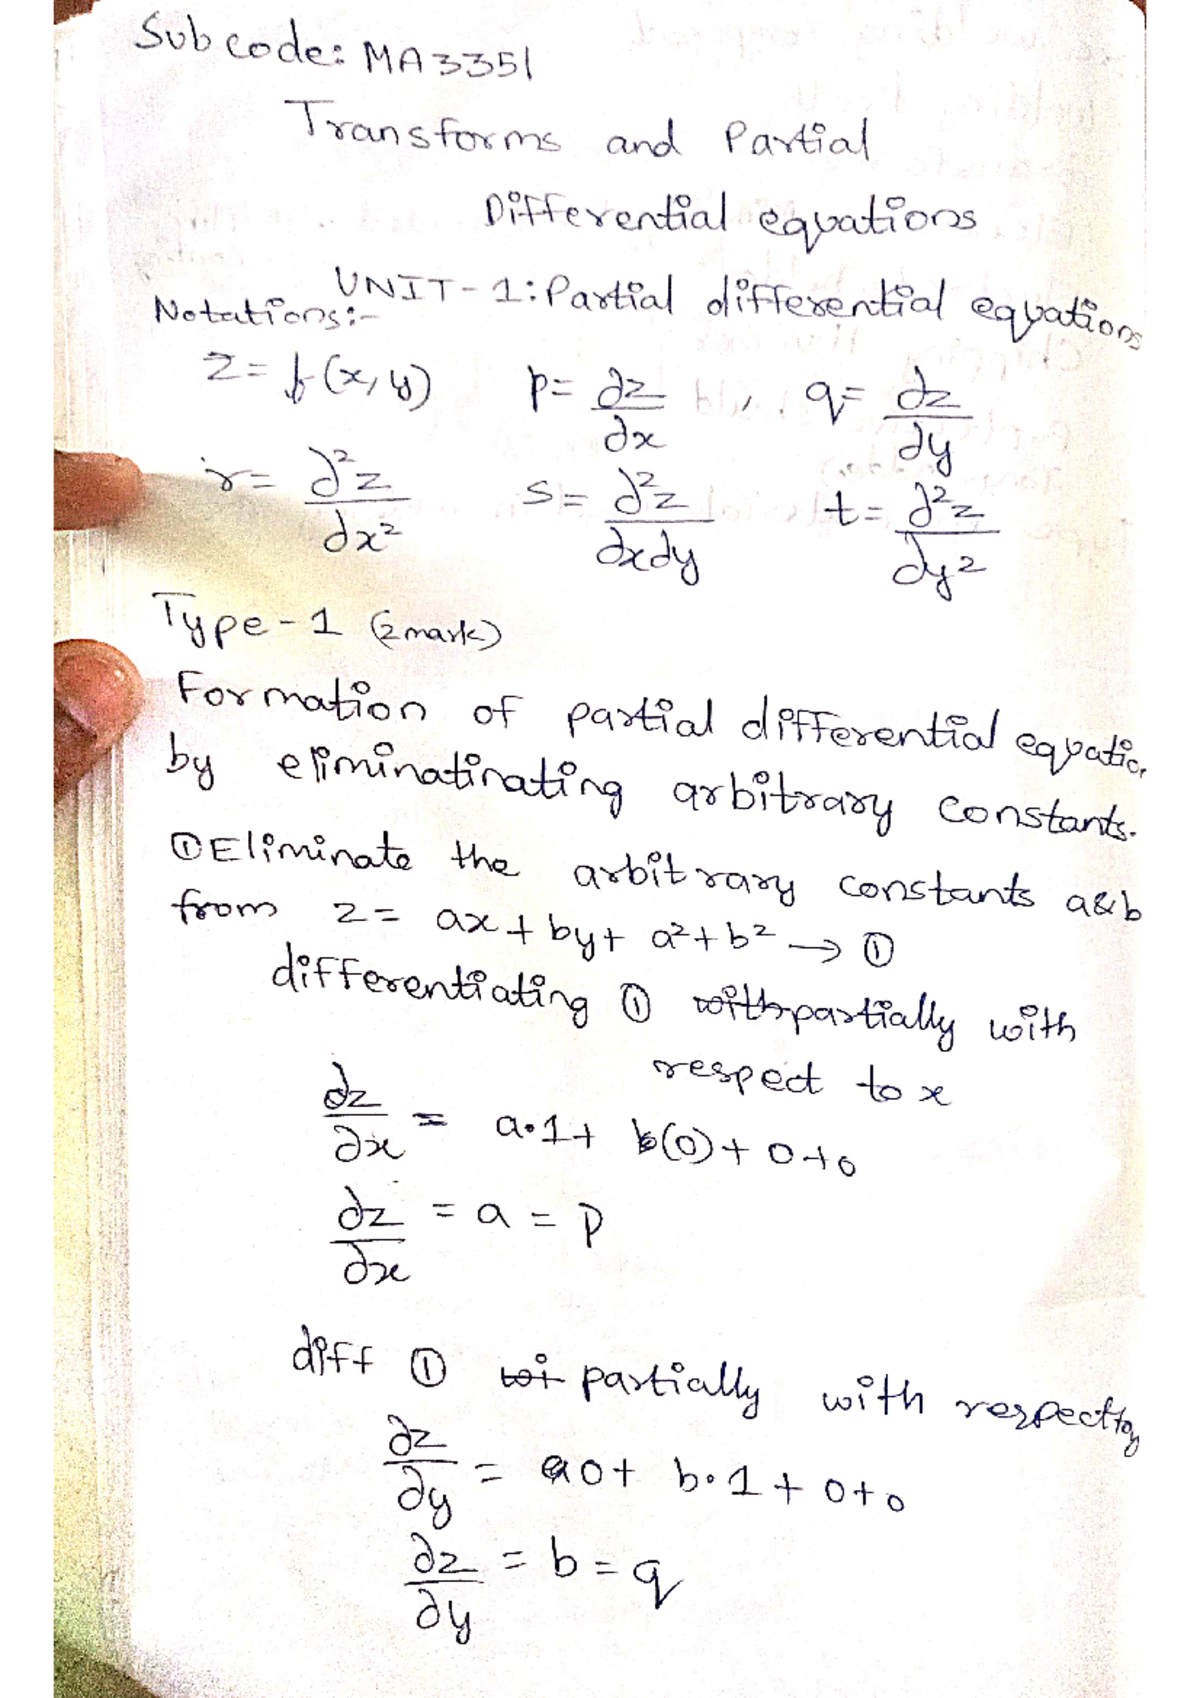 Sub code: MA3351
Transforms and Partial
Differential equations
UNIT-1: Partial differential equations
Notations:-
z = f(x, y) p = ∂z/∂x , q = ∂z/∂y
r = ∂²z/∂x² s = ∂²z/∂x∂y t = ∂²z/∂y²
Type-1 (2mark)
Formation of partial differential equation
by eliminatinating arbitrary constants.
① Eliminate the arbitrary constants a&b
from z = ax + by + a² + b² → ①
differentiating ① with partially with
respect to x
∂z/∂x = a·1 + b(0) + 0+0
∂z/∂x = a = p
diff ① wi partially with respect to y
∂z/∂y = a0 + b·1 + 0+0
∂z/∂y = b = q